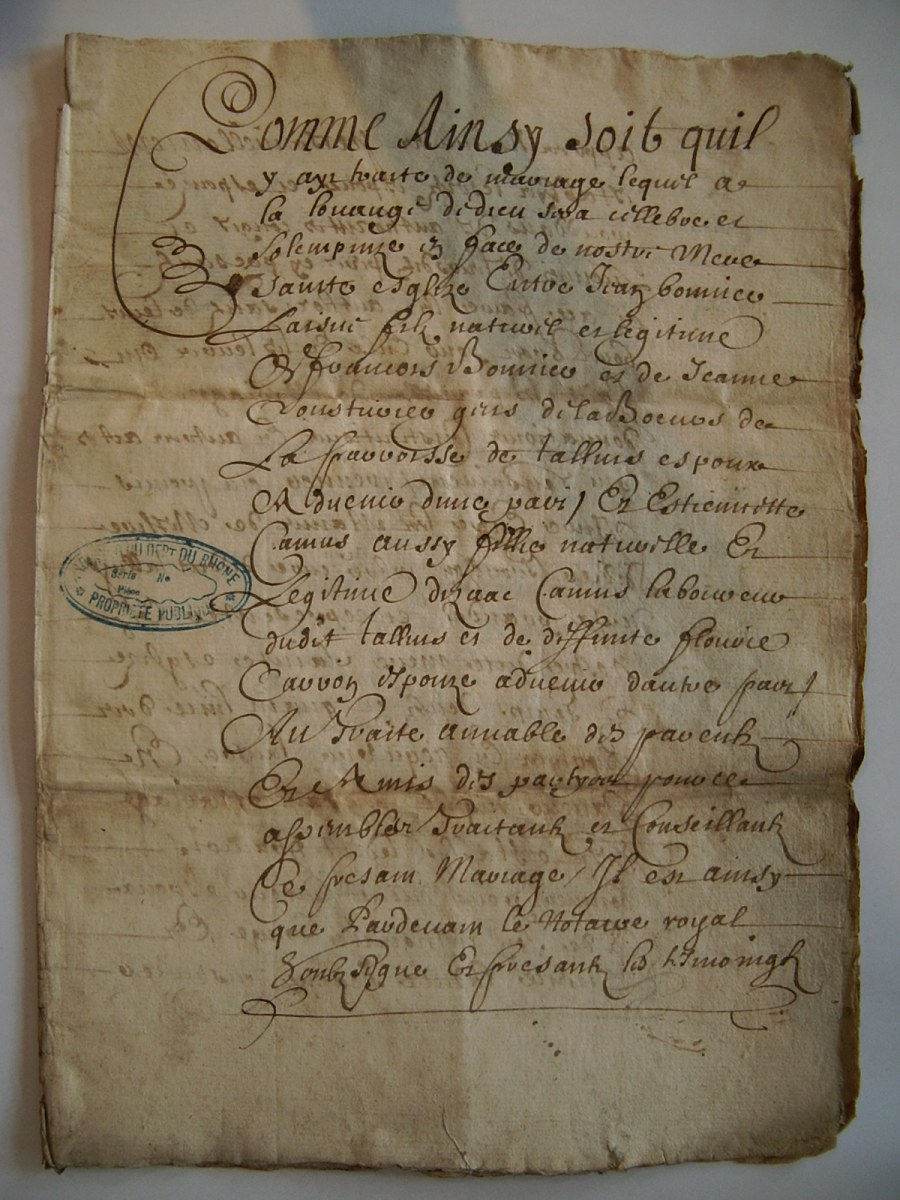 Comme Ainsy soit quil
y ayt traite de mariage lequel a
la louange de dieu sera cellebre et
Solempnize en face de nostre Mere
Sainte esglize Entre Jean bonnier
Laisne filz naturel et legitime
de francois Bonnier et de Jeanne
gens de la
La parroisse de talluis espoux
Advenir dune part Et Estiennette
Camus aussy fille naturelle Et
Legitime dizaac Camus laboureur
dudit talluis et de deffunte flourie
Carron espouze advenir dautre part
Au Traite amiable des parentz
Et Amis des partyes pource
assemblez Traitantz et Conseillantz
Le presant Mariage Il est ainsy
que Pardevant le Notaire royal
Soubzsigne Et presantz les tesmoingz
DU DEPT DU RHONE
Série No
PROPRIÉTÉ PUBLIQUE